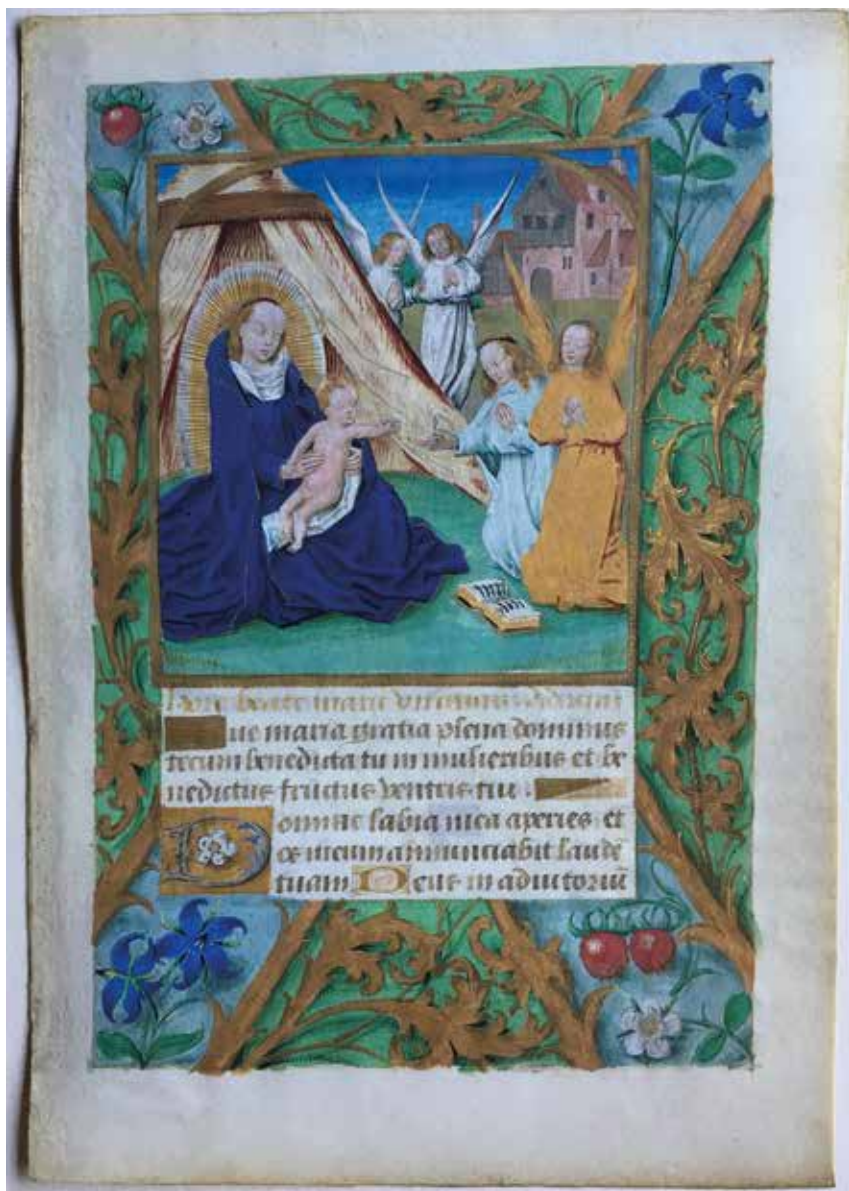 hore beate marie virginis
ue maria gratia plena dominus
tecum benedicta tu in mulieribus et be
nedictus fructus ventris tui .
D omine labia mea aperies et
os meum annunciabit laudē
tuam Deus in adiutoriū